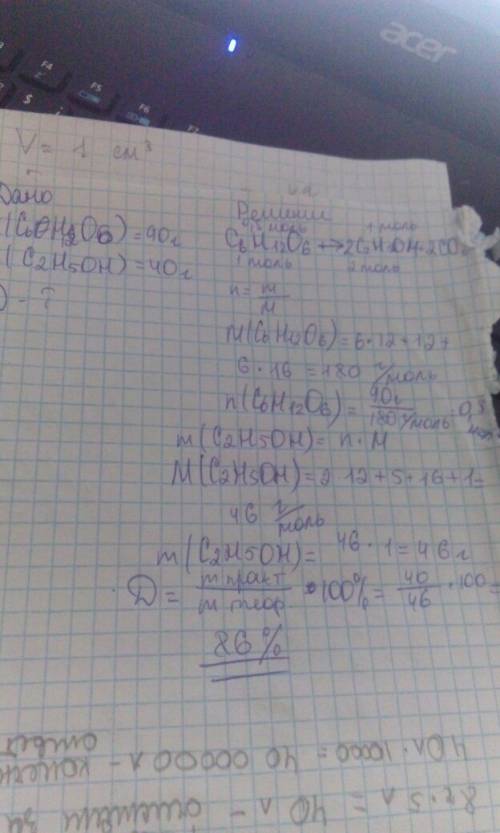 acer
F4
F5
F6
F7
$
V = 1 см³
Дано
(C6H12O6) = 90г
(C2H5OH) = 40г
) - ?
Решение
0,5 моль 1 моль
C6H12O6 → 2C2H5OH + 2CO2
1 моль 2 моль
n = m/M
M(C6H12O6) = 6·12+12+
6·16 = 180 г/моль
n(C6H12O6) = 90г/180г/моль = 0,5 моль
m(C2H5OH) = n·M
M(C2H5OH) = 2·12+5+16+1=
46 г/моль
m(C2H5OH) = 46·1 = 46г
D = m практ/m теор · 100% = 40/46 · 100 =
86%
40л·10000 = 4000000л -
8г·5л = 40л -